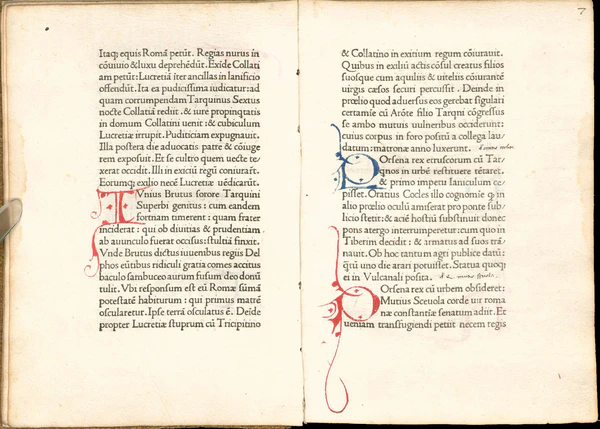 Itaq; equis Romā petūt. Regias nurus in
cōuiuio &luxu deprehēdūt. Exīde Collati
am petūt: Lucretiā īter ancillas in lanificio
offendūt. Ita ea pudicissima iudicatur: ad
quam corrumpendam Tarquinus Sextus
nocte Collatiā rediit. & iure propinqtatis
in domum Collatini uenit: & cubiculum
Lucretiæ irrupit. Pudiciciam expugnauit.
Illa postera die aduocatis patre & cōiuge
rem exposuit. Et se cultro quem ueste te/
xerat occidit. Illi in exiciū regū coniurāt.
Eorumq; exilio necē Lucretiæ uēdicarūt.
IVnius Brutus sorore Tarquini
Superbi genitus: cum eandem
fortnam timerent: quam frater
inciderat: qui ob diuitias & prudentiam
ab auunculo fuerat occisus: stultiā finxit.
Vnde Brutus dictus iuuenibus regiis Del
phos eūtibus ridiculi gratia comes accitus
baculo sambuceo aurum fusum deo donū
tulit. Vbi responsum est eū Romæ sūmā
potestatē habiturum: qui primus matrē
oscularetur. Ipse terrā osculatus ē. Deīde
propter Lucretiæ stuprum cū Tricipitino
7
& Collatino in exitium regum cōiurauit.
Quibus in exiliū actis cōsul creatus filios
suosque cum aquiliis & uiteliis cōiurantē
uirgis cæsos securi percussit. Deinde in
prœlio quod aduersus eos gerebat sigulari
certamīe cū Arōte filio Tarqni cōgressus
se ambo mutuis uulneribus occiderunt:
cuius corpus in foro positū a collega lau/
datum: matronæ anno luxerunt.
POrsena rex etruscorum cū Tar/
qnos in urbē restituere tētaret.
& primo impetu Ianiculum ce
pisset. Oratius Cocles illo cognomīe q in
alio prœlio oculū amiserat pro ponte sub/
licio stetit: & aciē hostiū substinuit donec
pons atergo interrumperetur: cum quo in
Tiberim decidit: & armatus ad suos trā/
nauit. Ob hoc tantum agri publice datū:
qtū uno die arari potuisset. Statua quoqj
ei in Vulcanali posita.
POrsena rex cū urbem obsideret:
Mutius Sceuola corde uir roma
næ constantiæ senatum adiit. Et
ueniam transfugiendi petiit necem regis